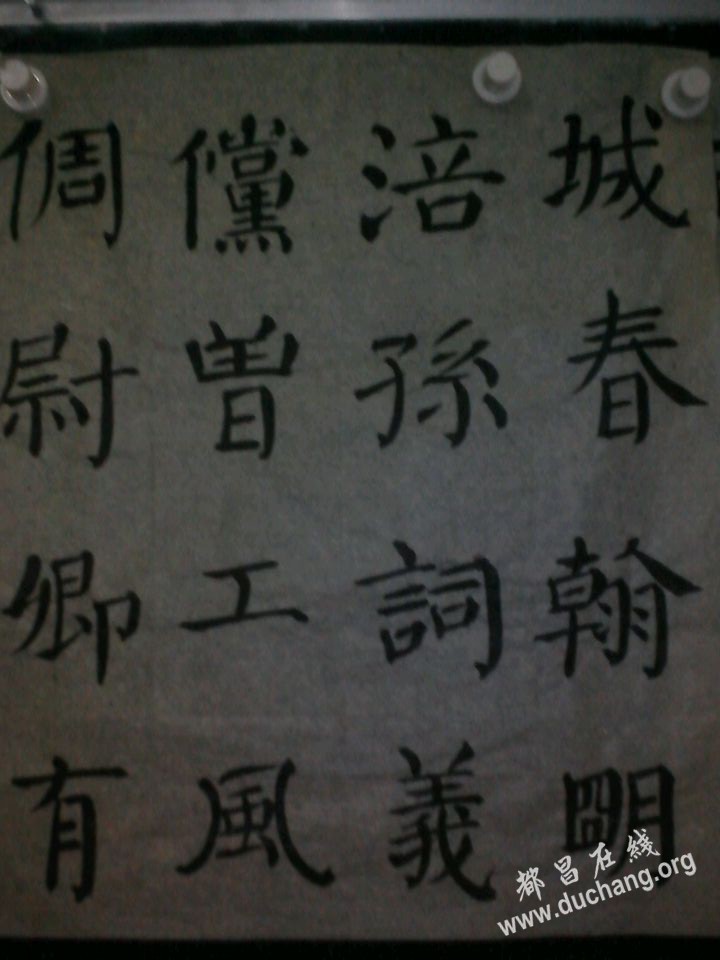 城春翰明
涪孫詞義
儻曽工風
倜尉卿有
都昌在线
www.duchang.org